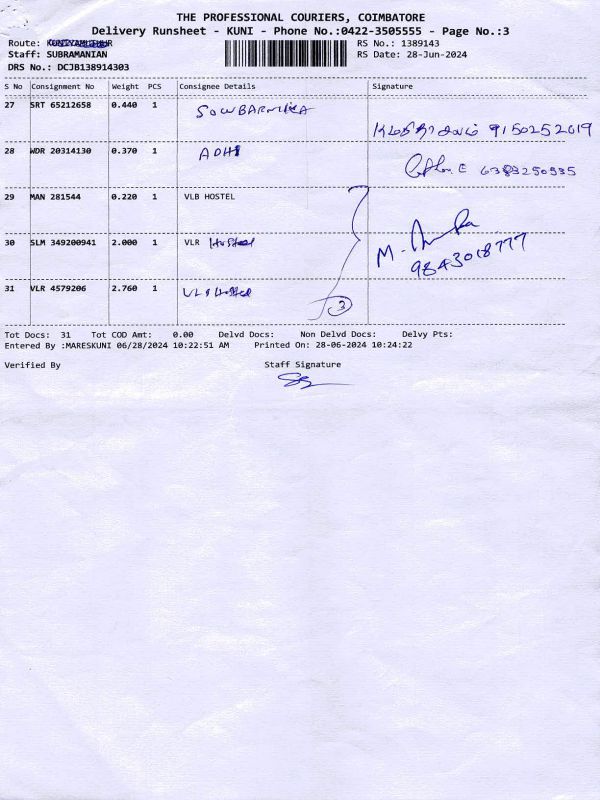 THE PROFESSIONAL COURIERS, COIMBATORE
Delivery Runsheet - KUNI - Phone No.:0422-3505555 - Page No.:3
Route: KUNIYAMUTHUR RS No.: 1389143
Staff: SUBRAMANIAN RS Date: 28-Jun-2024
DRS No.: DCJB138914303
S No Consignment No Weight PCS Consignee Details Signature
27 SRT 65212658 0.440 1 SOWBARNIKA
9150252019
28 WDR 20314130 0.370 1 ADHI
6383250535
29 MAN 281544 0.220 1 VLB HOSTEL
30 SLM 349200941 2.000 1 VLR Hostel
M.
9843018777
31 VLR 4579206 2.760 1 VLB Hostel
3
Tot Docs: 31 Tot COD Amt: 0.00 Delvd Docs: Non Delvd Docs: Delvy Pts:
Entered By :MARESKUNI 06/28/2024 10:22:51 AM Printed On: 28-06-2024 10:24:22
Verified By Staff Signature